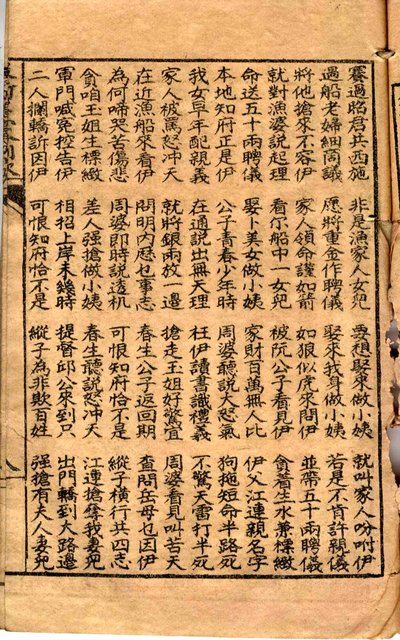 賽過昭君共西施 非是漁家人女兒 要想娶來做小姨 就叫家人吩咐伊
過船老婦細商議 應將重金作聘儀 娶來我身做小姨 若是不肯許親儀
將他搶來不容伊 家人領命謹如箭 如狼似虎來問伊 並帶五十兩聘儀
就對漁婆說起理 看尔船中一女兒 被阮公子看見伊 貪着生水兼標緻
命送五十兩聘儀 娶卜美女做小姨 家財百萬無人比 伊父江連親名字
本地知府正是伊 公子青春少年時 周婆聽說大怒氣 狗拖短命半路死
我女早年配親義 在通說出無天理 枉伊讀書識禮義 不驚天雷打半死
家人被罵怒冲天 就將銀兩放一邊 搶走玉姐好驚宜 周婆看見叫苦天
在近漁船來看伊 問明內歷乜事志 春生公子返回期 查問岳母乜因伊
為何啼哭苦傷悲 周婆即時說透机 可恨知府恰不是 縱子橫行共四志
貪咱玉姐生標緻 差人強搶做小姨 春生聽說怒冲天 江連搶奪我妻兒
軍門喊冤控告伊 相招上岸未幾時 提督邱公來到只 出門轎到大路邊
二人攔轎訴因伊 可恨知府恰不是 縱子為非欺百姓 強搶有夫人妻兒